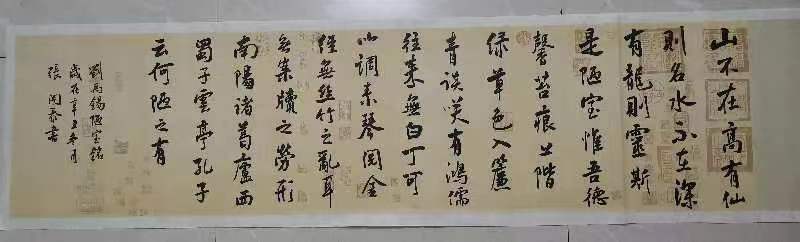 山不在高有仙
則名水不在深
有龍則靈斯
是陋室惟吾德
馨苔痕上階
绿草色入簾
青谈笑有鴻儒
往来無白丁可
以调素琴阅金
经無丝竹之亂耳
無案牍之勞形
南陽诸葛廬西
蜀子雲亭孔子
云何陋之有
劉禹錫陋室銘
歲在辛丑冬月
張書